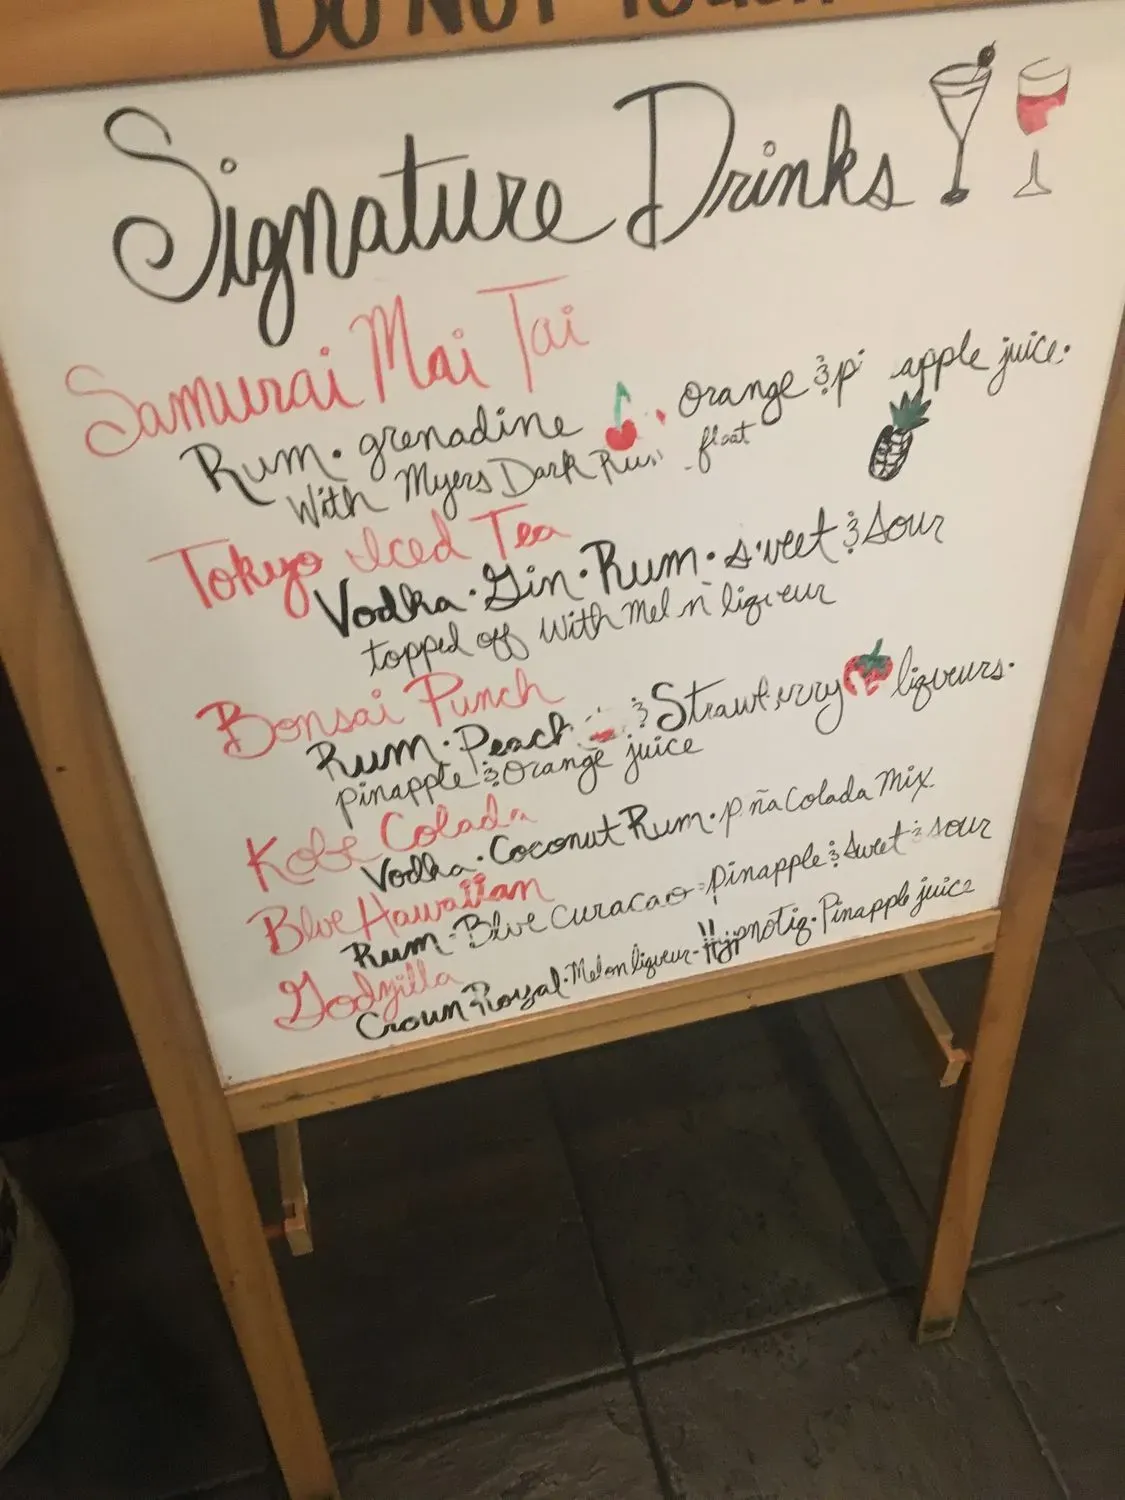 DO NOT Touch
Signature Drinks
Samurai Mai Tai
Rum • grenadine • orange & pi apple juice •
With Myers Dark Rum float
Tokyo Iced Tea
Vodka • Gin • Rum • sweet & sour
topped off with Mel n liqueur
Bonsai Punch
Rum • Peach & Strawberry liqueurs •
pineapple & orange juice
Kobe Colada
Vodka • Coconut Rum • p ña Colada Mix
Blue Hawaiian
Rum - Blue curacao - pineapple & sweet & sour
Godzilla
Crown Royal • Melon liqueur - Hypnotiq • Pineapple juice